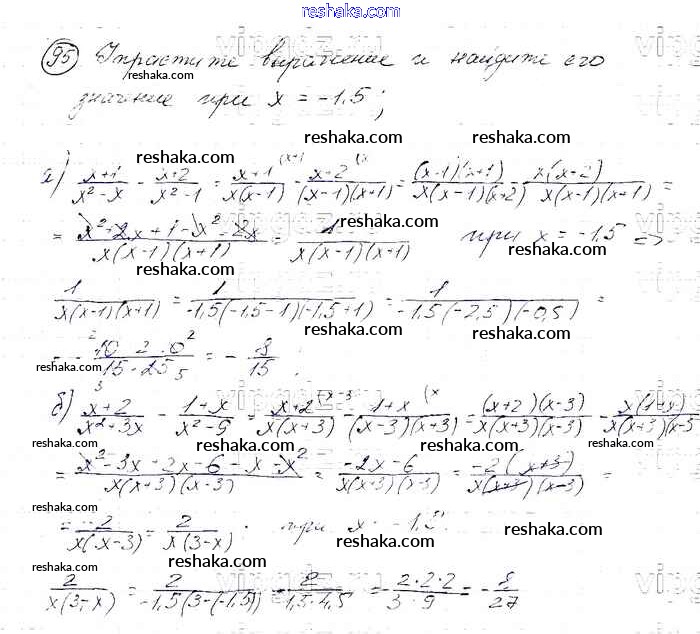 reshaka.com
95 Упростите выражение и найдите его
reshaka.com
значение при x = -1,5;
reshaka.com reshaka.com reshaka.com
а) (x+1)/(x²-x) - (x+2)/(x²-1) = (x+1)/(x(x-1)) - (x+2)/((x-1)(x+1)) = ((x-1)(x+1))/(x(x-1)(x+2)) - x(x+2)/(x(x-1)(x+1)) =
= (x²+2x+1-x²-2x)/(x(x-1)(x+1)) = 1/(x(x-1)(x+1)) при x = -1,5 =>
reshaka.com reshaka.com reshaka.com
1/(x(x-1)(x+1)) = 1/(-1,5(-1,5-1)(-1,5+1)) = 1/(-1,5(-2,5)(-0,5)) =
reshaka.com reshaka.com
= - 8/15
reshaka.com reshaka.com
б) (x+2)/(x²+3x) - (1+x)/(x²-9) = (x+2)/(x(x+3)) - (1+x)/((x-3)(x+3)) = ((x+2)(x-3))/(x(x+3)(x-3)) -
reshaka.com reshaka.com reshaka.com
= (x²-3x+2x-6-x-x²)/(x(x+3)(x-3)) = (-2x-6)/(x(x+3)(x-3)) = -2(x+3)/(x(x+3)(x-3)) =
reshaka.com reshaka.com
= -2/(x(x-3)) = 2/(x(3-x)) при x = -1,5
reshaka.com reshaka.com reshaka.com
2/(x(3-x)) = 2/(-1,5(3-(-1,5))) = 2/(-1,5·4,5) = -(2·2·2)/(3·9) = -8/27
reshaka.com reshaka.com